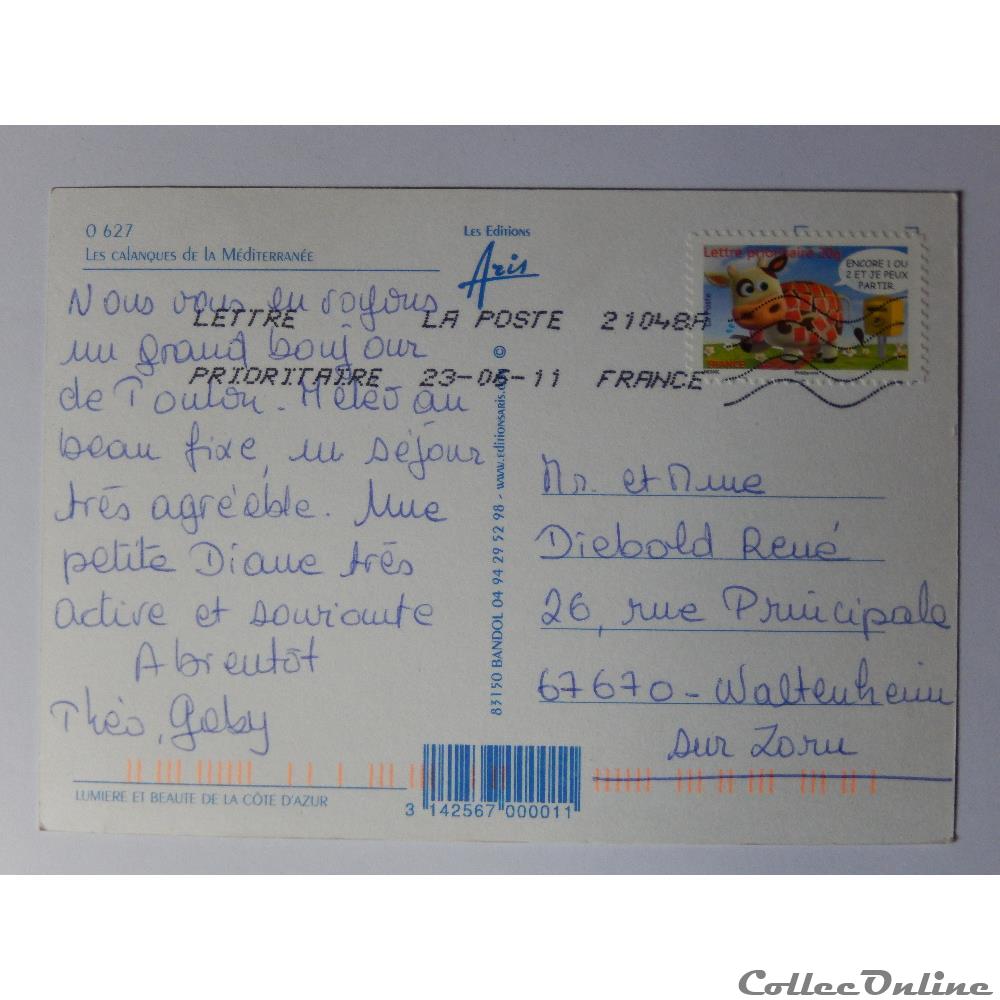 O 627
Les calanques de la Méditerranée
Les Editions
Aris
Lettre prioritaire 20g
ENCORE 1 OU
2 ET JE PEUX
PARTIR
La Poste
FRANCE
LETTRE LA POSTE 21048A
PRIORITAIRE 23-06-11 FRANCE
Nous vous envoyons
un grand boujour
de Toulon. Météo au
beau fixe, un séjour
très agréable. Une
petite Diane très
active et souriante
A bientôt
Théo, Gaby
83150 BANDOL 04 94 29 52 98 - www.editionsaris.com ©
Mr. et Mme
Diebold René
26, rue Principale
67670 - Waltenheim
sur Zorn
LUMIERE ET BEAUTE DE LA CÔTE D'AZUR
3 142567 000011
CollecOnline